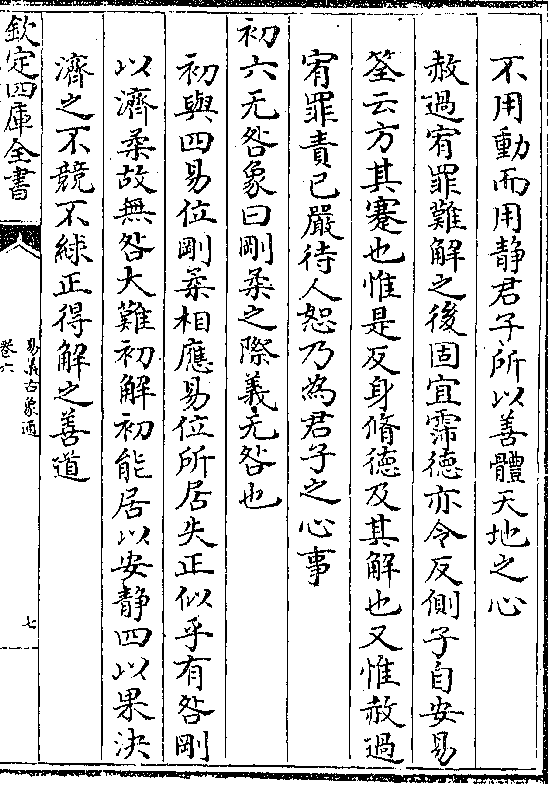 不用動而用静君子所以善體天地之心
赦過宥罪難解之後固宜霈德亦令反側子自安易
筌云方其蹇也惟是反身脩徳及其解也又惟赦過
宥罪責已嚴待人恕乃為君子之心事
初六无咎象曰剛柔之際義无咎也
初與四易位剛柔相應易位所居失正似乎有咎剛
以濟柔故無咎大難初解初能居以安静四以果決
濟之不競不絿正得解之善道
欽定四庫全書
易義古象通
卷六
七